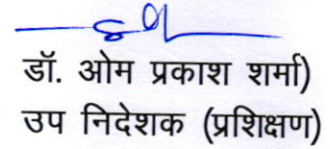 डॉ. ओम प्रकाश शर्मा)
उप निदेशक (प्रशिक्षण)